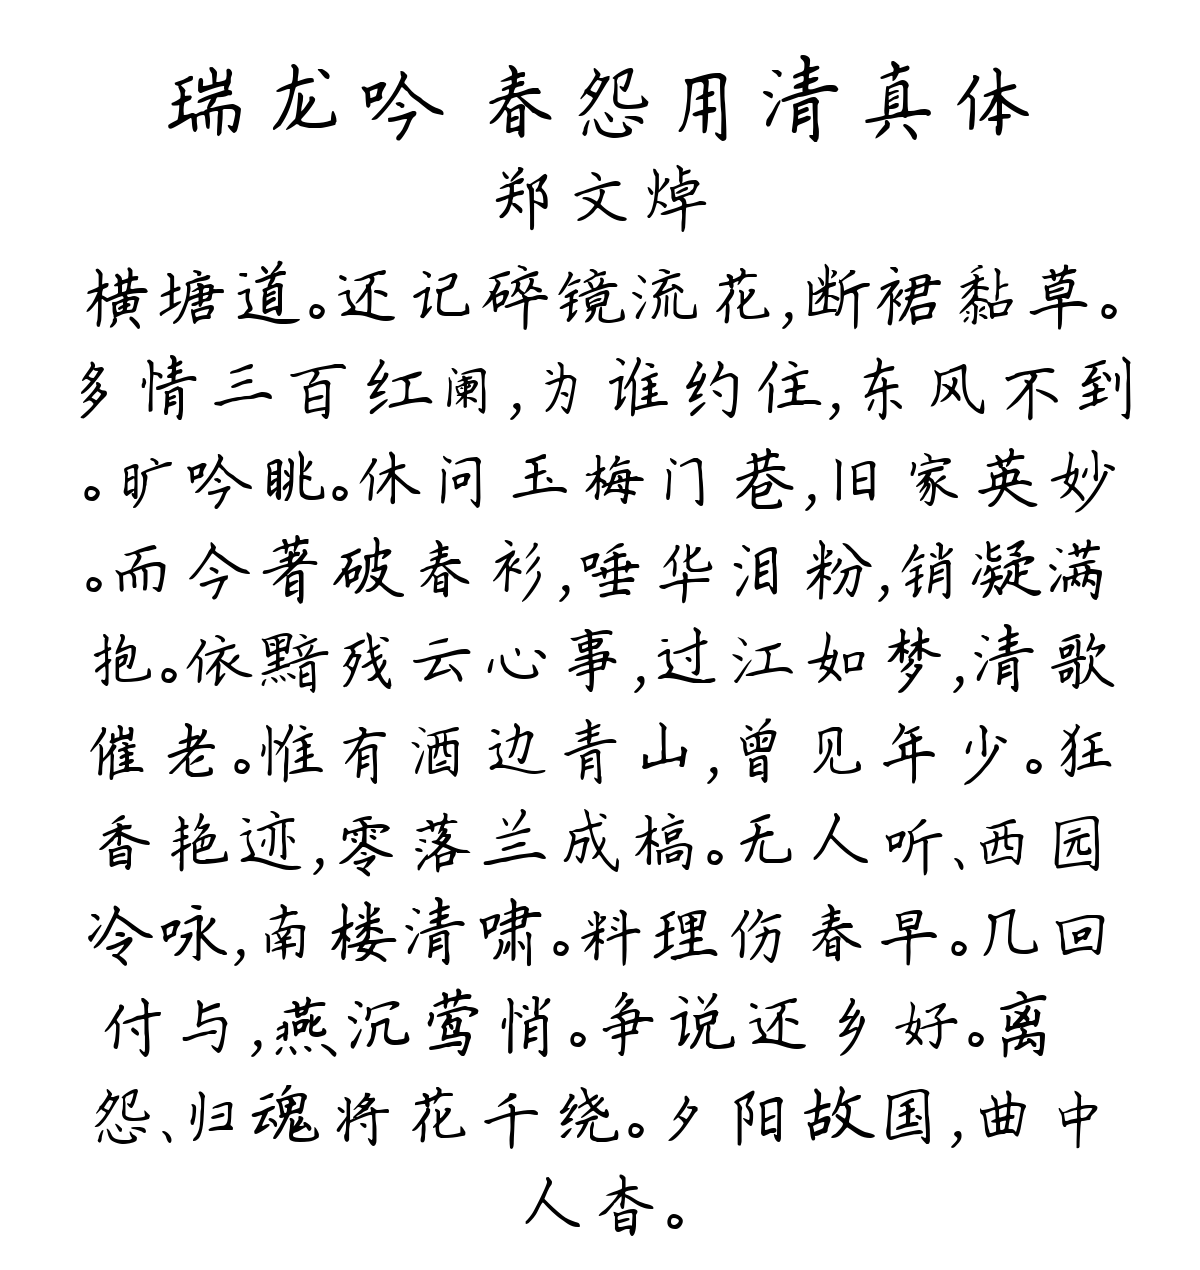 瑞龙吟 春怨用清真体
郑文焯
横塘道。还记碎镜流花,断裙黏草。
多情三百红阑,为谁约住,东风不到
。旷吟眺。休问玉梅门巷,旧家英妙
。而今著破春衫,唾华泪粉,销凝满
抱。依黯残云心事,过江如梦,清歌
催老。惟有酒边青山,曾见年少。狂
香艳迹,零落兰成槁。无人听、西园
冷咏,南楼清啸。料理伤春早。几回
付与,燕沉莺悄。争说还乡好。离
怨、归魂将花千绕。夕阳故国,曲中
人杳。